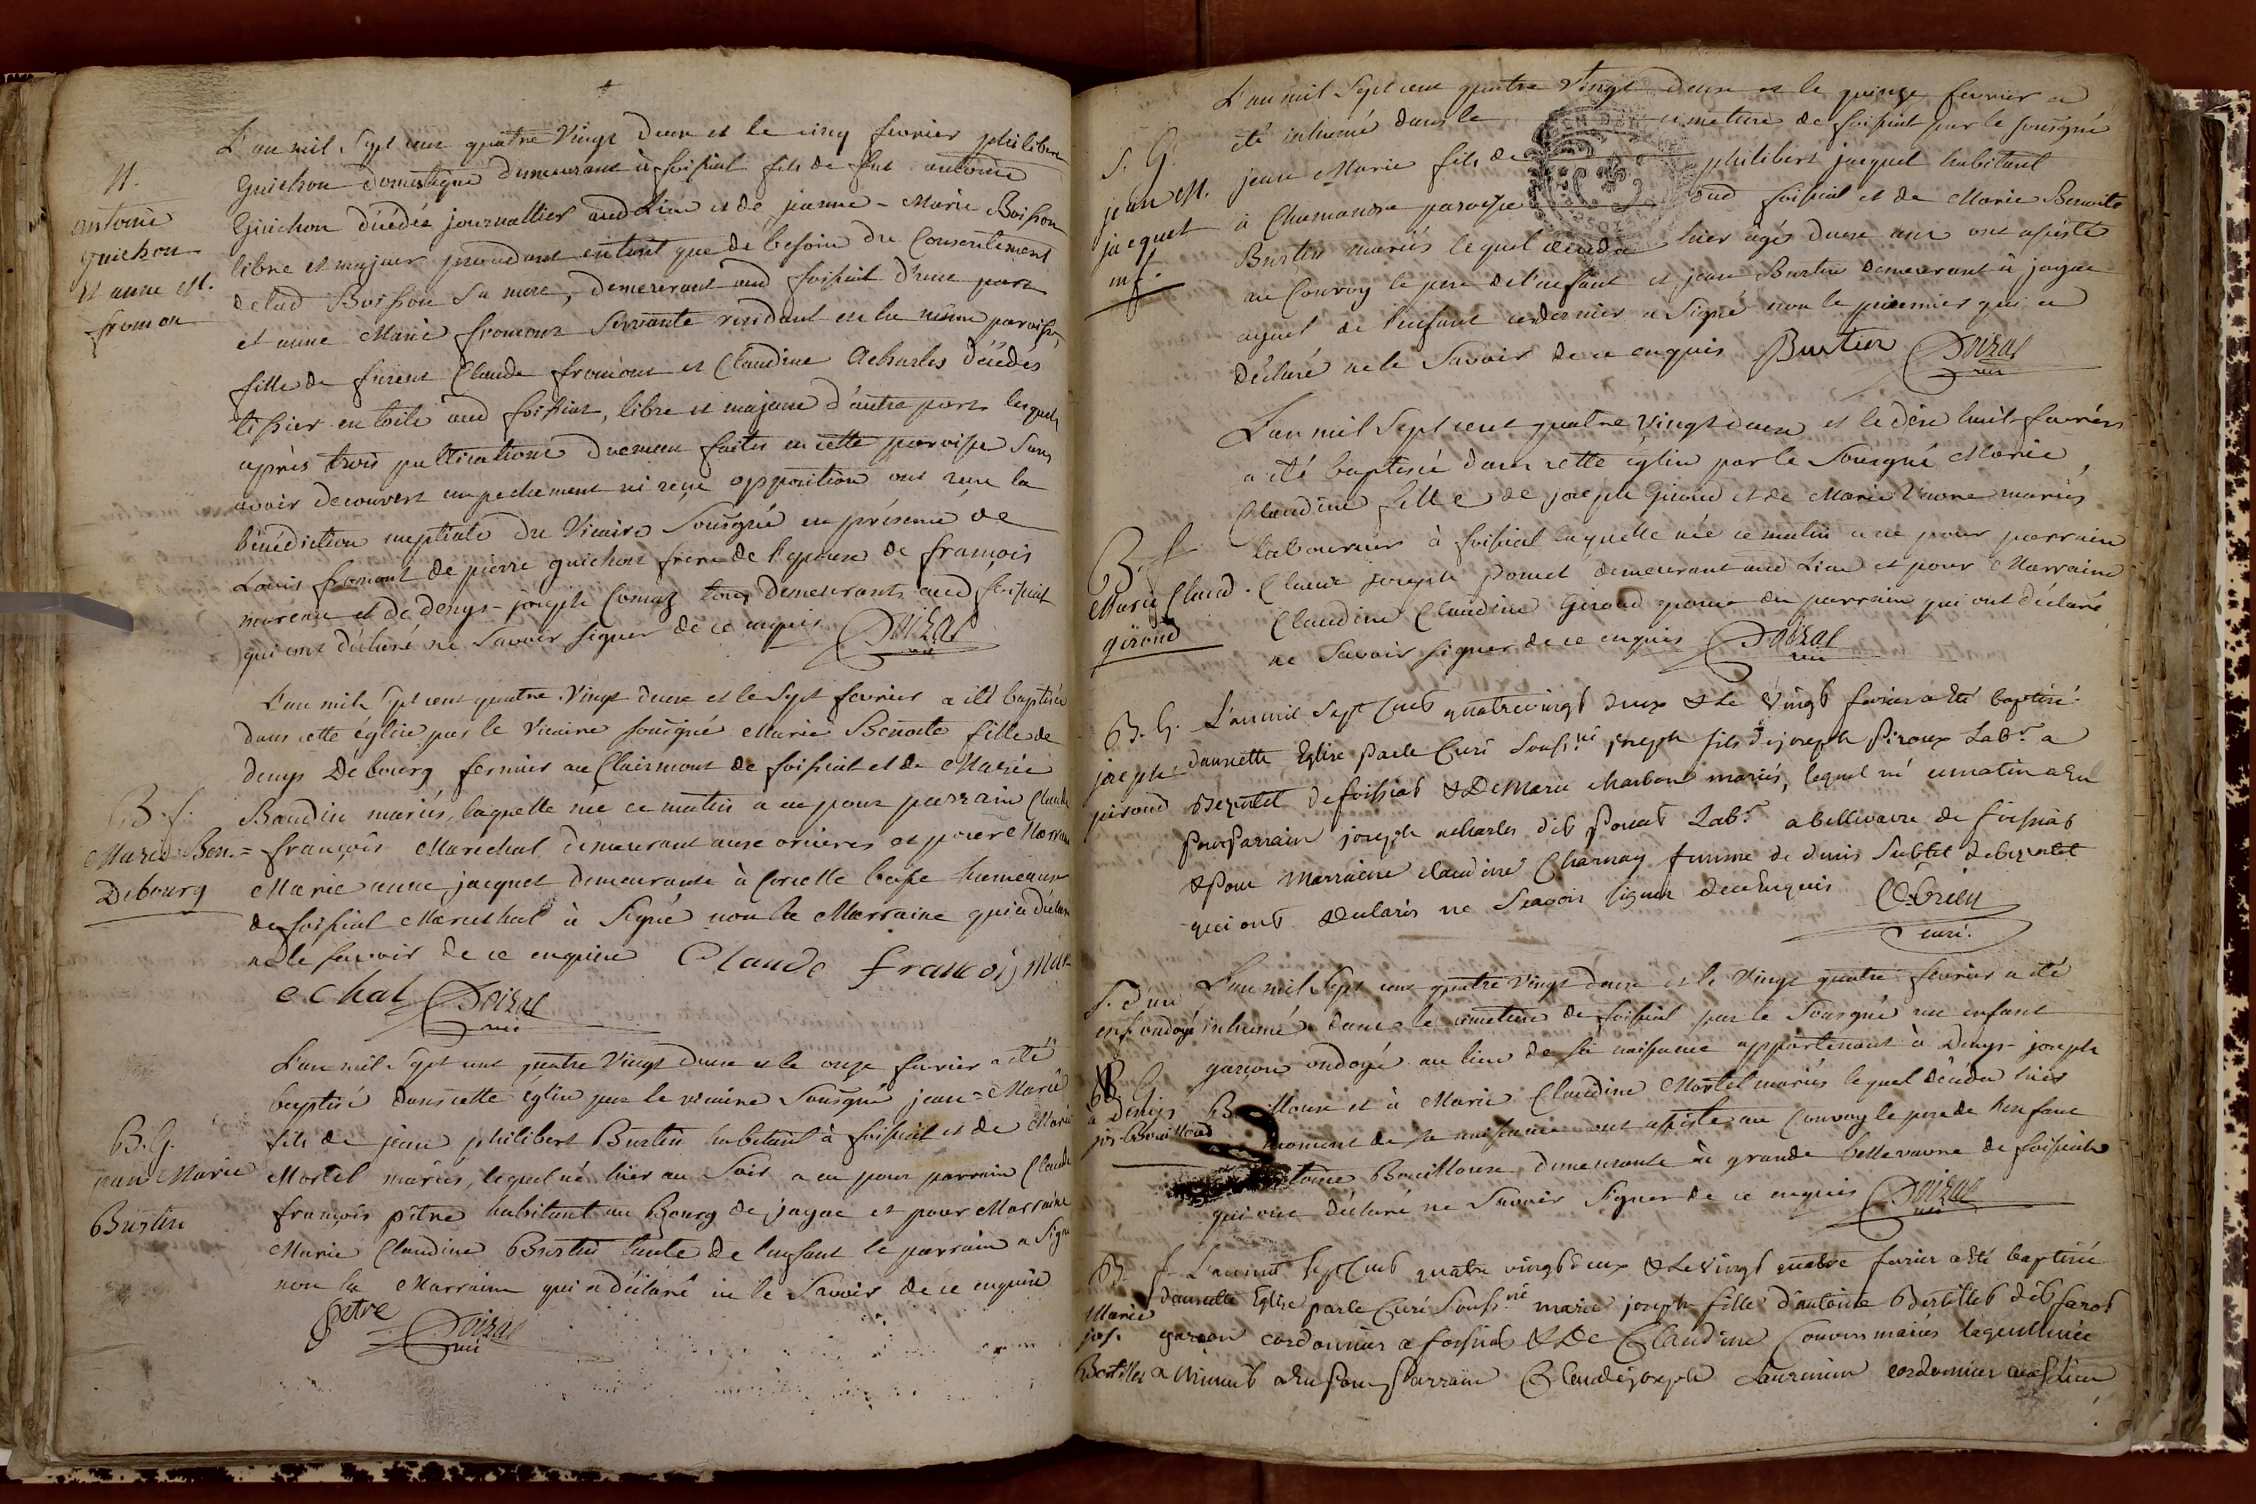 L'an mil Sept cent quatre Vingt deux et le cinq fevrier philibert
M.
antoine
guichon
et anne M.
fromon
Guichon domestique demeurant à foissiat fils de feu antoine
Guichon décédés journallier aud Lieu et de jeanne-Marie Boisson
libre et majeur procedant entant que de besoin du Consentement
delad Boisson Sa mere, demeurant aud foissiat d'une part
et anne Marie fromont Servante residant en la même paroisse,
fille de furent Claude fromont et Claudine Acharles décédés
tissier en toile aud foissiat, libre et majeure d'autre part lesquels
après trois publications duement faites en cette paroisse Sans
avoir decouvert empechement ni reçue opposition ont reçu la
bénédiction nuptiale du Vicaire Sousigné en présence de
Louis fromont de pierre guichon frere de l'epoux de françois
moreau et de denys-joseph Comaz tous demeurants aud foissiat
qui ont déclaré ne Savoir signer de ce enquis Doizal
vic
L'an mil Sept cent quatre Vingt deux et le Sept fevrier a été baptisée
dans cette église par le Vicaire sousigné Marie Benoite fille de
denys Debourg fermier au Clairmont de foissiat et de Marie
B. f.
Marie Ben.=
Debourg
Baudin mariés, laquelle née ce matin a eu pour parrain Claude
françois Marechal demeurant aux orieres et pour Marraine
Marie anne jacquet demeurante à Cercette basse hameaux
de foissiat Marechal à Signé non la Marraine qui a déclaré
ne le savoir de ce enquise Claude françois mar
echal Doizal
vic
L'an mil Sept cent quatre Vingt deux et le onze fevrier a été
baptisé dans cette église par le vicaire Sousigné jean=Marie
B. G.
jean Marie
Burtin
fils de jean philibert Burtin habitant à foissiat et de Marie
Mortel mariés, lequel né hier au Soir a eu pour parrain Claude
françois pitre habitant au Bourg de jayac et pour Marraine
Marie Claudine Burtin tante de l'enfant le parrain a Signé
non la Marraine qui a déclaré ne le Savoir de ce enquise
pitre Doizal
vic
L'an mil Sept cent quatre Vingt deux et le quinze fevrier a
S. G.
jean M.
jacquet
inf.
été inhumé dans le cimetiere de foissiat par le sousigné
jean Marie fils de philibert jacquet habitant
à Chamandre paroisse dud foissiat et de Marie Benoite
Burtin mariés lequel décédé hier agés d'une ans ont assisté
au Convoy le pere de l'enfant et jean Burtin demeurant à jayac
ayeul de l'enfant ce dernier a Signé non le premier qui a
déclaré ne le Savoir de ce enquis Burtin Doizal
vic
L'an mil Sept cent quatre Vingt deux et le dix huit fevrier
a été baptisée dans cette église par le Sousigné Marie
Claudine fille de joseph Giroud et de Marie Vavre mariés
B. f.
Marie Claud.
giroud
laboureur à foissiat laquelle née ce matin a eu pour parrain
Claude joseph poncet demeurant aud Lieu et pour Marraine
Claudine Claudine Giroud epouse du parrain qui ont déclaré
ne Savoir signer de ce enquis Doizal
vic
B. G.
joseph
piroud
L'an mil Sept Cent quatrevingt deux & Le Vingt fevrier a été baptisé
dans cette Eglise par le Curé Souss.né joseph fils de joseph Piroux Lab.r a
Bezentet de foissiat & De Marie Charbon mariés, lequel né ce matin a Eu
pour Parrain joseph acharles dit Ponat Lab.r a bellevavre de foissiat
& pour Marraine claudine Charnay femme de denis Subtet de bezentet
qui ont declarés ne Scavoir signer de ce Enquis
curé.
S. d'un
enf. ondoyé
G.
à Denys
jos. Bouilloud
L'an mil Sept cent quatre Vingt deux et le Vingt quatre fevrier a été
inhumé dans le cimetiere de foissiat par le Sousigné un enfant
garçon ondoyé au lieu de sa naissance appartenant à Denys-joseph
Bouilloux et à Marie Claudine Mortel mariés lequel décédé hier
moment de sa naissance ont assisté au Convoy le pere de l'enfant
antoine Bouilloux demeurante à grande bellevavre de foissiat
qui ont déclaré ne Savoir Signer de ce enquis Doizal
vic
B. f.
Marie
jos.
Bertillet
L'an mil Sept Cent quatre vingt deux & Le vingt quatre fevrier a été baptisée
dans cette Eglise par le Curé Souss.né marie joseph fille d'antoine Bertillet dit farod
garçon cordonnier a foissiat & De Claudine Convers mariés laquelle née
a Minuit a Eu Pour Parrain Claude joseph Laurencin cordonnier aud lieu